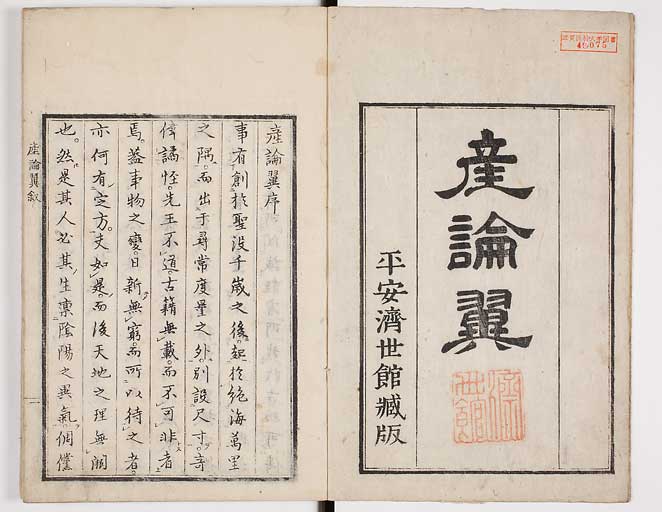 產論翼
平安濟世館藏版
產論翼序
事有創於聖沒千歲之後。起於絕海萬里
之隅。而出于尋常度量之外。別設尺寸。奇
偉譎怪。先王不道。古籍無載。而不可非者
焉。蓋事物之變。日新無窮。而所以待之者。
亦何有定方。夫如是。而後天地之理無闕
也。然是其人必其生稟陰陽之異氣。倜儻
產論翼敘
一